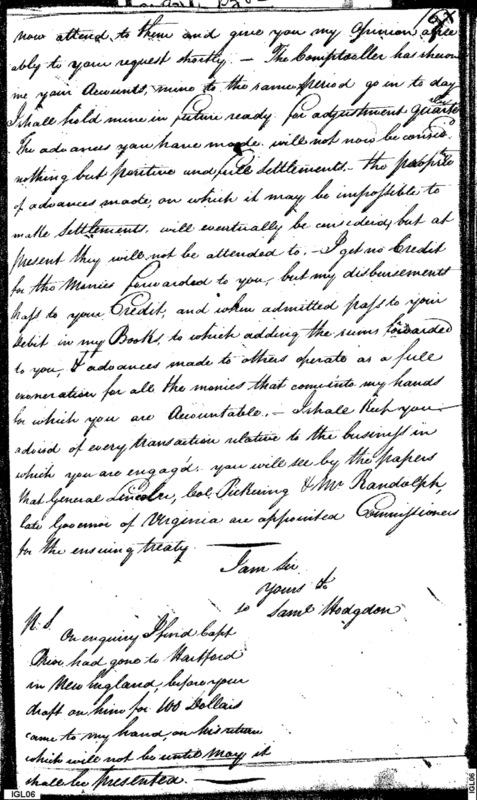 now attend to them and give you my Opinion agree
ably to your request shortly. — The Comptroller has shewn
me your Accounts, mine to the same period go in to day
I shall hold mine in future ready for adjustment quarterly
The advances you have made, will not now be consider'd
nothing but positive and full settlements. — the
of advances made, on which it may be impossible to
make settlements, will eventually be considered, but at
present they will not be attended to. — I get no Credit
for the Monies forwarded to you, but my disbursements
pass to your Credit, and when admitted pass to your
Debit in my Books, to which adding the sums forwarded
to you, & advances made to others operate as a full
exoneration for all the monies that come into my hands
for which you are Accountable. — I shall keep you
advised of every transaction relative to the business in
which you are engag'd. you will see by the papers
that General Lincoln, Col. Pickering & Mr Randolph,
late Governor of Virginia are appointed Commissioners
for the ensuing treaty —
I am Sir
Yours &c
Saml Hodgdon
N.S.
On enquiry I find Capt
Prior had gone to Hartford
in New England, before your
draft on him for 100 Dollars
came to my hand, on his return
which will not be until May it
shall be presented. —
IGL06
IGL06